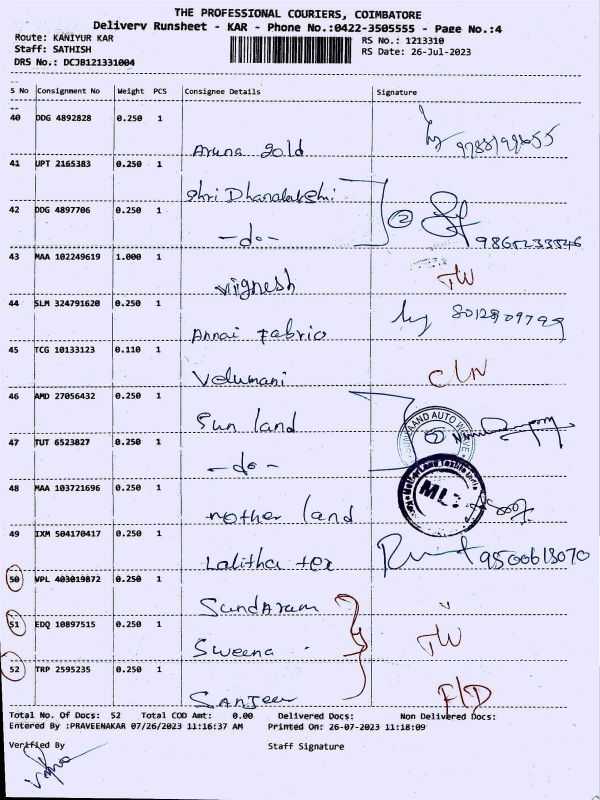 THE PROFESSIONAL COURIERS, COIMBATORE
Delivery Runsheet - KAR - Phone No.:0422-3505555 - Page No.:4
Route: KANIYUR KAR RS No.: 1213310
Staff: SATHISH RS Date: 26-Jul-2023
DRS No.: DCJB121331004
S No Consignment No Weight PCS Consignee Details Signature
40 DDG 4892828 0.250 1
Aruna gold
41 UPT 2165383 0.250 1
Shri Dhanalakshmi
42 DDG 4897706 0.250 1 2
-do-
43 MAA 102249619 1.000 1
Vignesh TW
44 SLM 324791620 0.250 1
Annai Fabric
45 TCG 10133123 0.110 1
Velumani
46 AMD 27056432 0.250 1
Sun land
47 TUT 6523827 0.250 1
-do-
48 MAA 103721696 0.250 1 MLT
mother land
49 IXM 504170417 0.250 1
Lalitha tex 9500613070
50 VPL 403019872 0.250 1
Sundaram
51 EDQ 10897515 0.250 1
Sweena TW
52 TRP 2595235 0.250 1
Sanjeev F/D
Total No. Of Docs: 52 Total COD Amt: 0.00 Delivered Docs: Non Delivered Docs:
Entered By :PRAVEENAKAR 07/26/2023 11:16:37 AM Printed On: 26-07-2023 11:18:09
Verified By Staff Signature